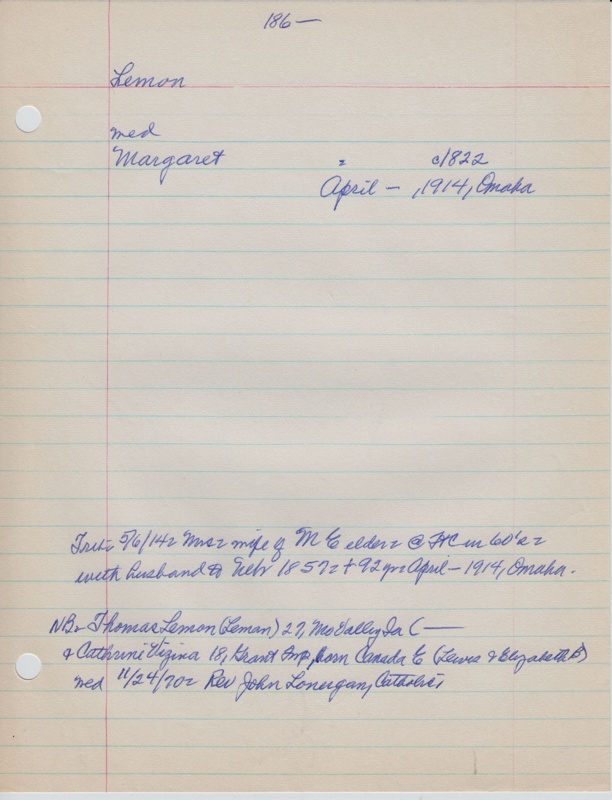 186—
Lemon
med
Margaret = c/1822
April – , 1914, Omaha
Trib= 5/6/14= Mrs= wife of M E elder= @ FtC in 60's=
with husband to Nebr 1857= + 92 yr= April – 1914, Omaha.
NB= Thomas Lemon (Leman) 27, MoValley Ia (—
& Cathrine Vizina 18, Grant Imp, born Canada E (Lewis & Elizabeth B)
med 11/24/70= Rev John Lonergan, Catholic,